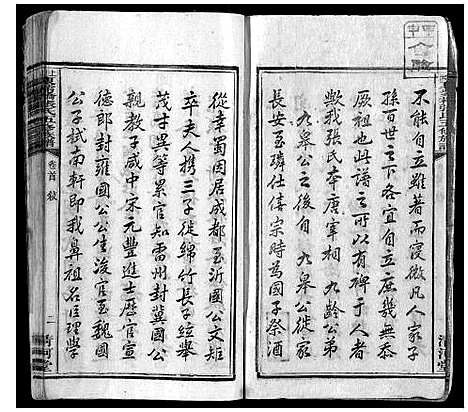 不能自立雖著而寖微凡人家子
孫百世之下各宜自立庶幾無忝
厥祖也此譜之所以有裨于人者
歟我張氏本唐宰相九齡公弟
九皋公之後自九皋公徙家
長安至璘仕僖宗時為國子祭酒
從幸蜀因居成都至沂國公文矩
卒夫人携三子徙綿竹長子紘舉
茂才異等累官知雷州封冀國公
親教子咸中宋元豐進士歷官宣
德郎封雍國公公生浚官至魏國
公子栻南軒即我鼻祖名臣理學
卷首 敍
二
清河堂